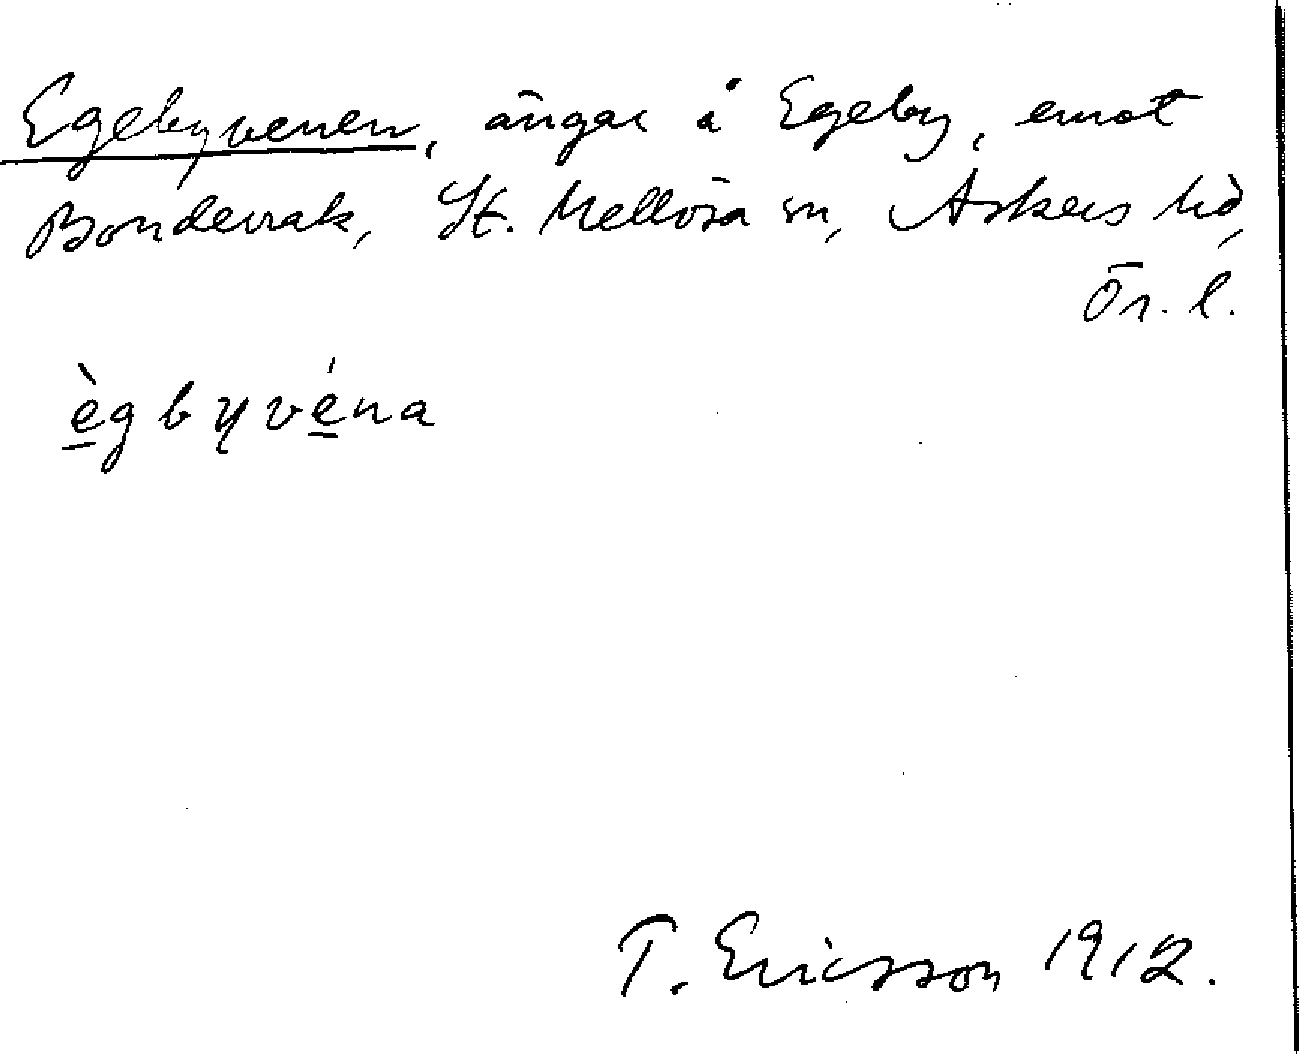 Egebyvenen, ängar å Egeby, emot
Bondevrak, St. Mellösa sn, Askers hd,
Ör. l.
ègbyvéna
T. Ericsson 1912.